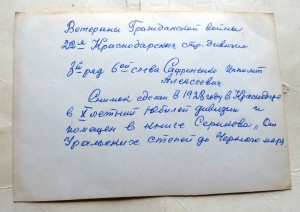 Ветераны Гражданской войны
22я Краснодарская стр. дивизия
3й ряд 6ой слева Сафоненко Ипполит
Алексеевич
Снимок сделан в 1928 году в Краснодаре
в X летний юбилей дивизии и
помещен в книге Серикова „От
Уральских степей до Черного моря